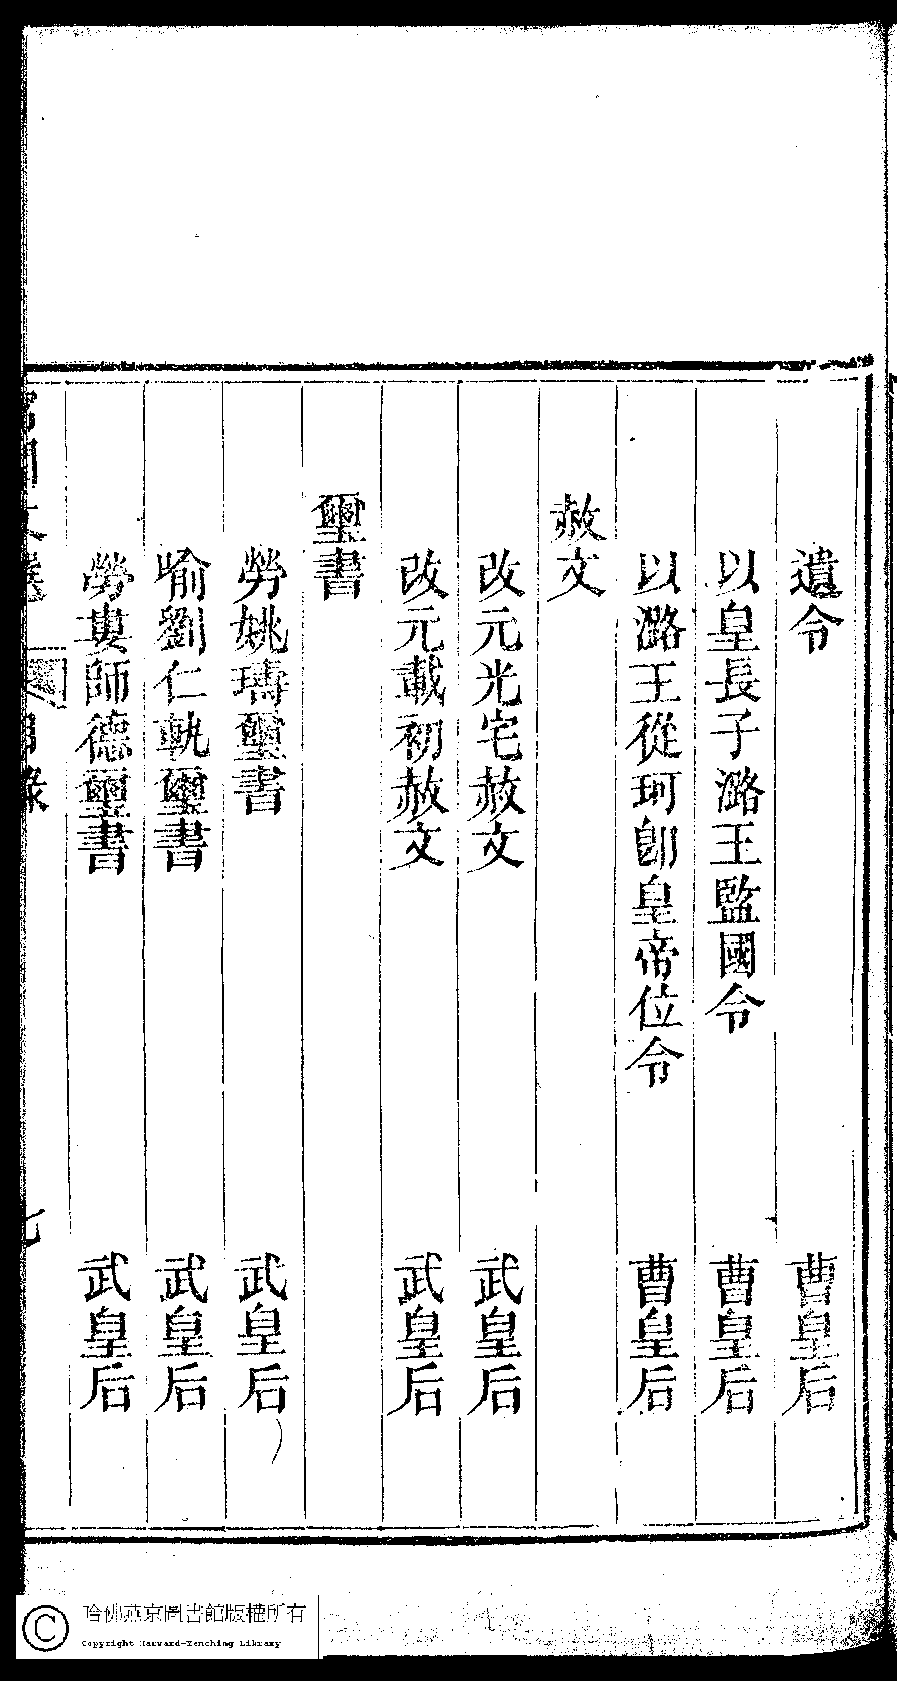 遺令 曹皇后
以皇長子潞王監國令 曹皇后
以潞王從珂卽皇帝位令 曹皇后
赦文
改元光宅赦文 武皇后
改元載初赦文 武皇后
璽書
勞姚璹璽書 武皇后
喻劉仁軌璽書 武皇后
勞婁師德璽書 武皇后
哈佛燕京圖書館版權所有
Copyright Harvard-Yenching Library